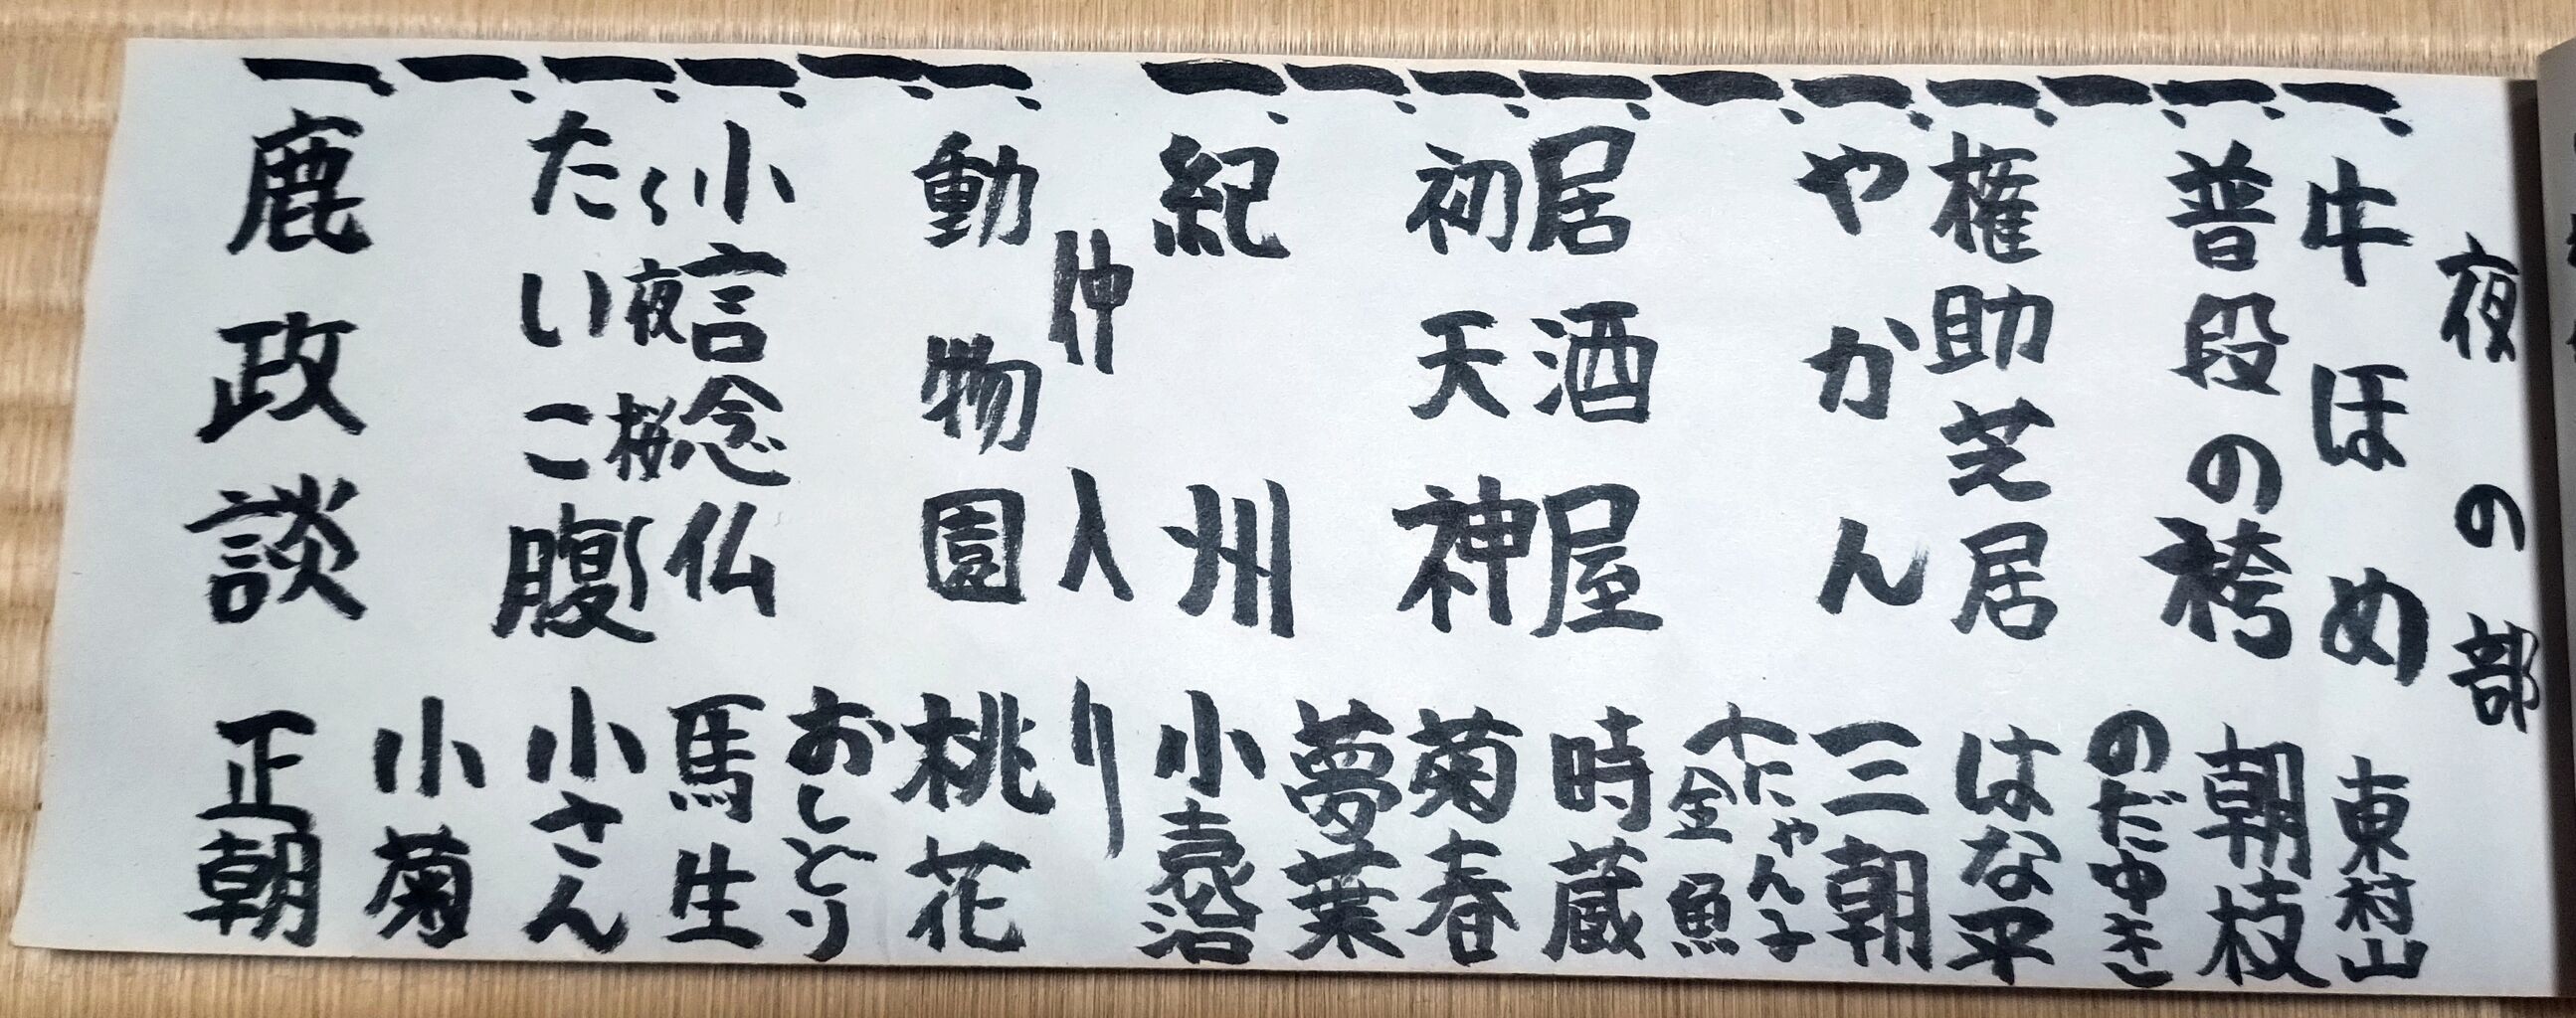 夜の部
一、牛ほめ 東村山
一、普段の袴 朝枝
一、 のだゆき
一、権助芝居 はな平
一、やかん 三朝
一、 にゃん子
金魚
一、居酒屋 時蔵
一、初天神 菊春
一、 夢葉
一、紀州 小袁治
仲入り
一、動物園 桃花
一、 おしどり
一、小言念仏 馬生
〜夜桜〜
一、たいこ腹 小さん
一、 小菊
一、鹿政談 正朝